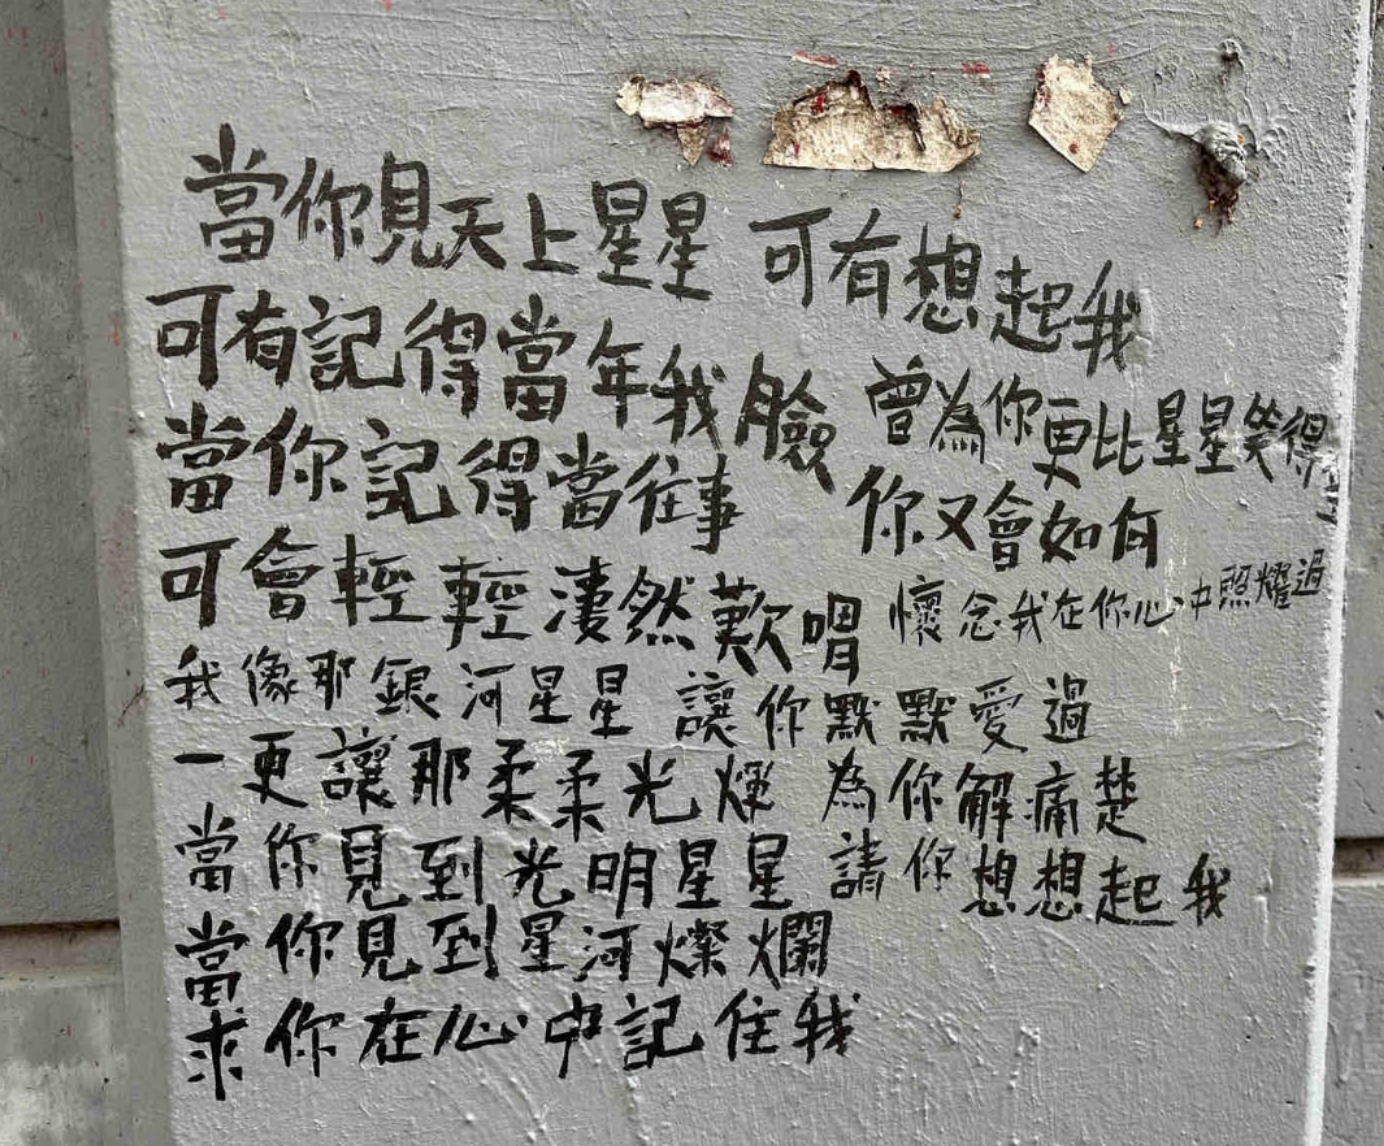 當你見天上星星 可有想起我
可有記得當年我臉 曾為你更比星星笑得
當你記得當往事 你又會如何
可會輕輕淒然歎喟 懷念我在你心中照耀過
我像那銀河星星 讓你默默愛過
一更讓那柔柔光輝 為你解痛楚
當你見到光明星星 請你想想起我
當你見到星河燦爛
求你在心中記住我